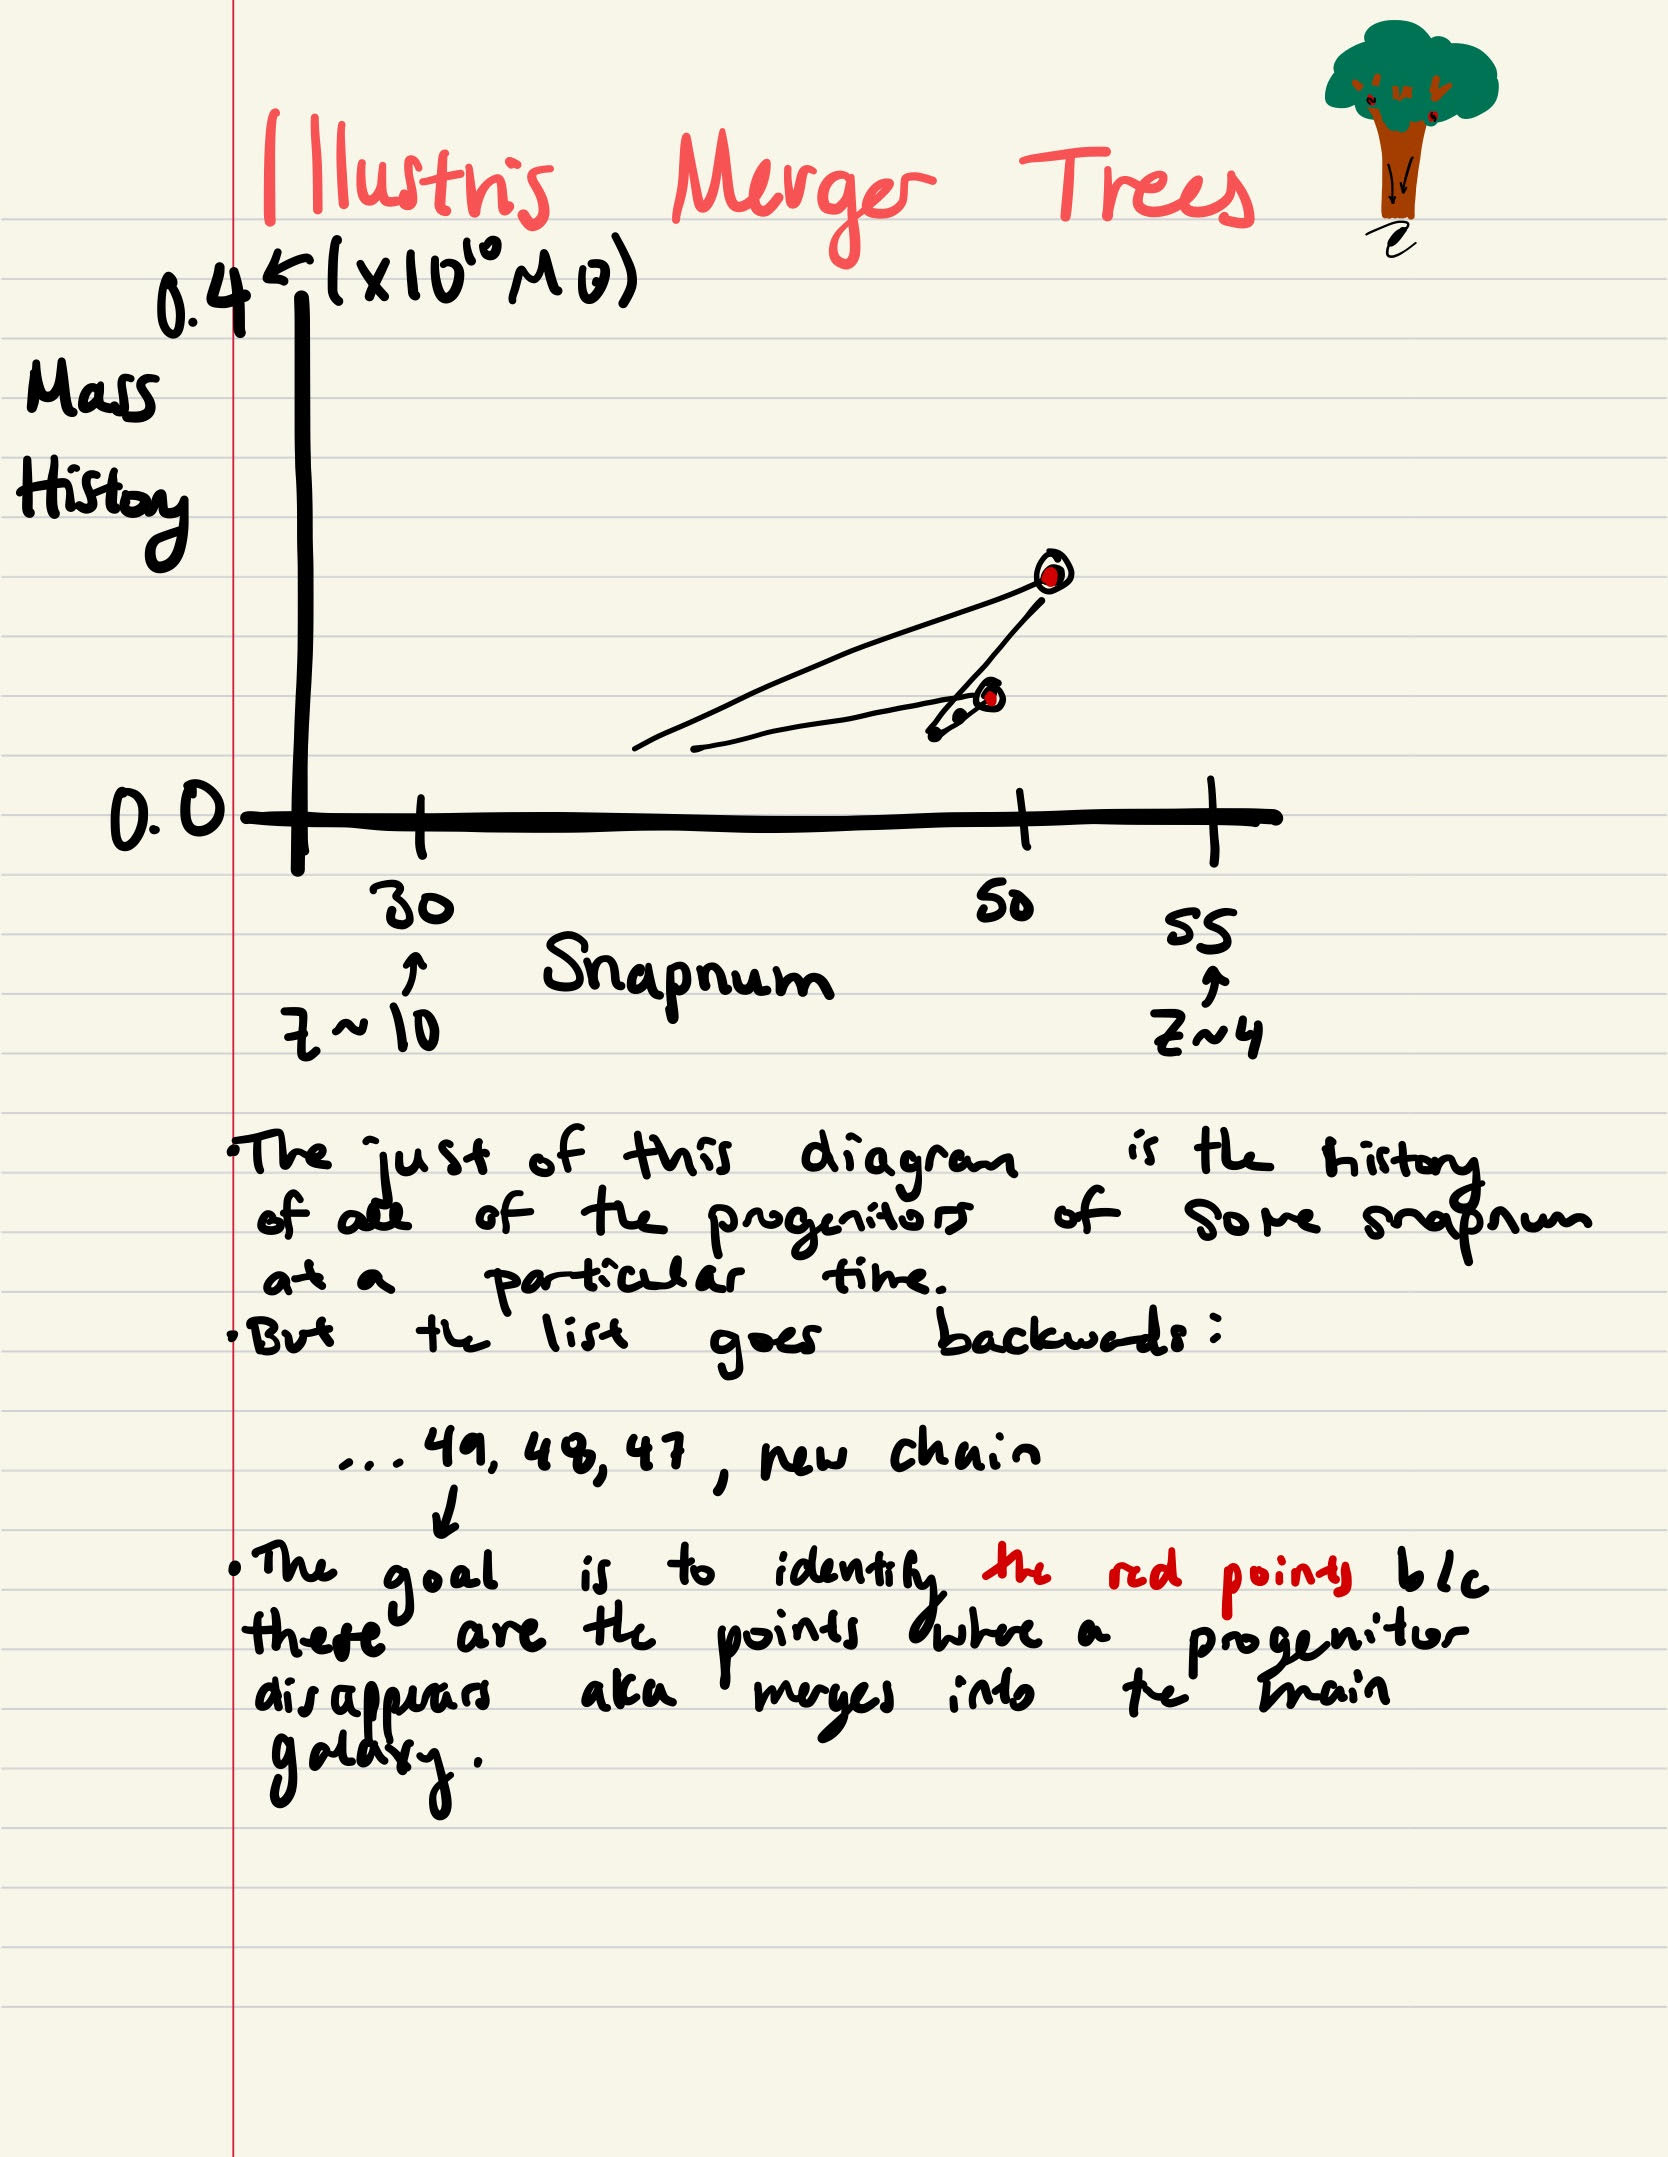 Illustris Merger Trees
0.4 ← (x10¹⁰ M⊙)
Mass
History
0.0
30
50
55
↑
Snapnum
↑
z ~ 10
z ~ 4
• The just of this diagram is the history
of all of the progenitors of some snapnum
at a particular time.
• But the list goes backwards:
... 49, 48, 47, new chain
↓
• The goal is to identify the red points b/c
these are the points where a progenitor
disappears aka merges into the main
galaxy.